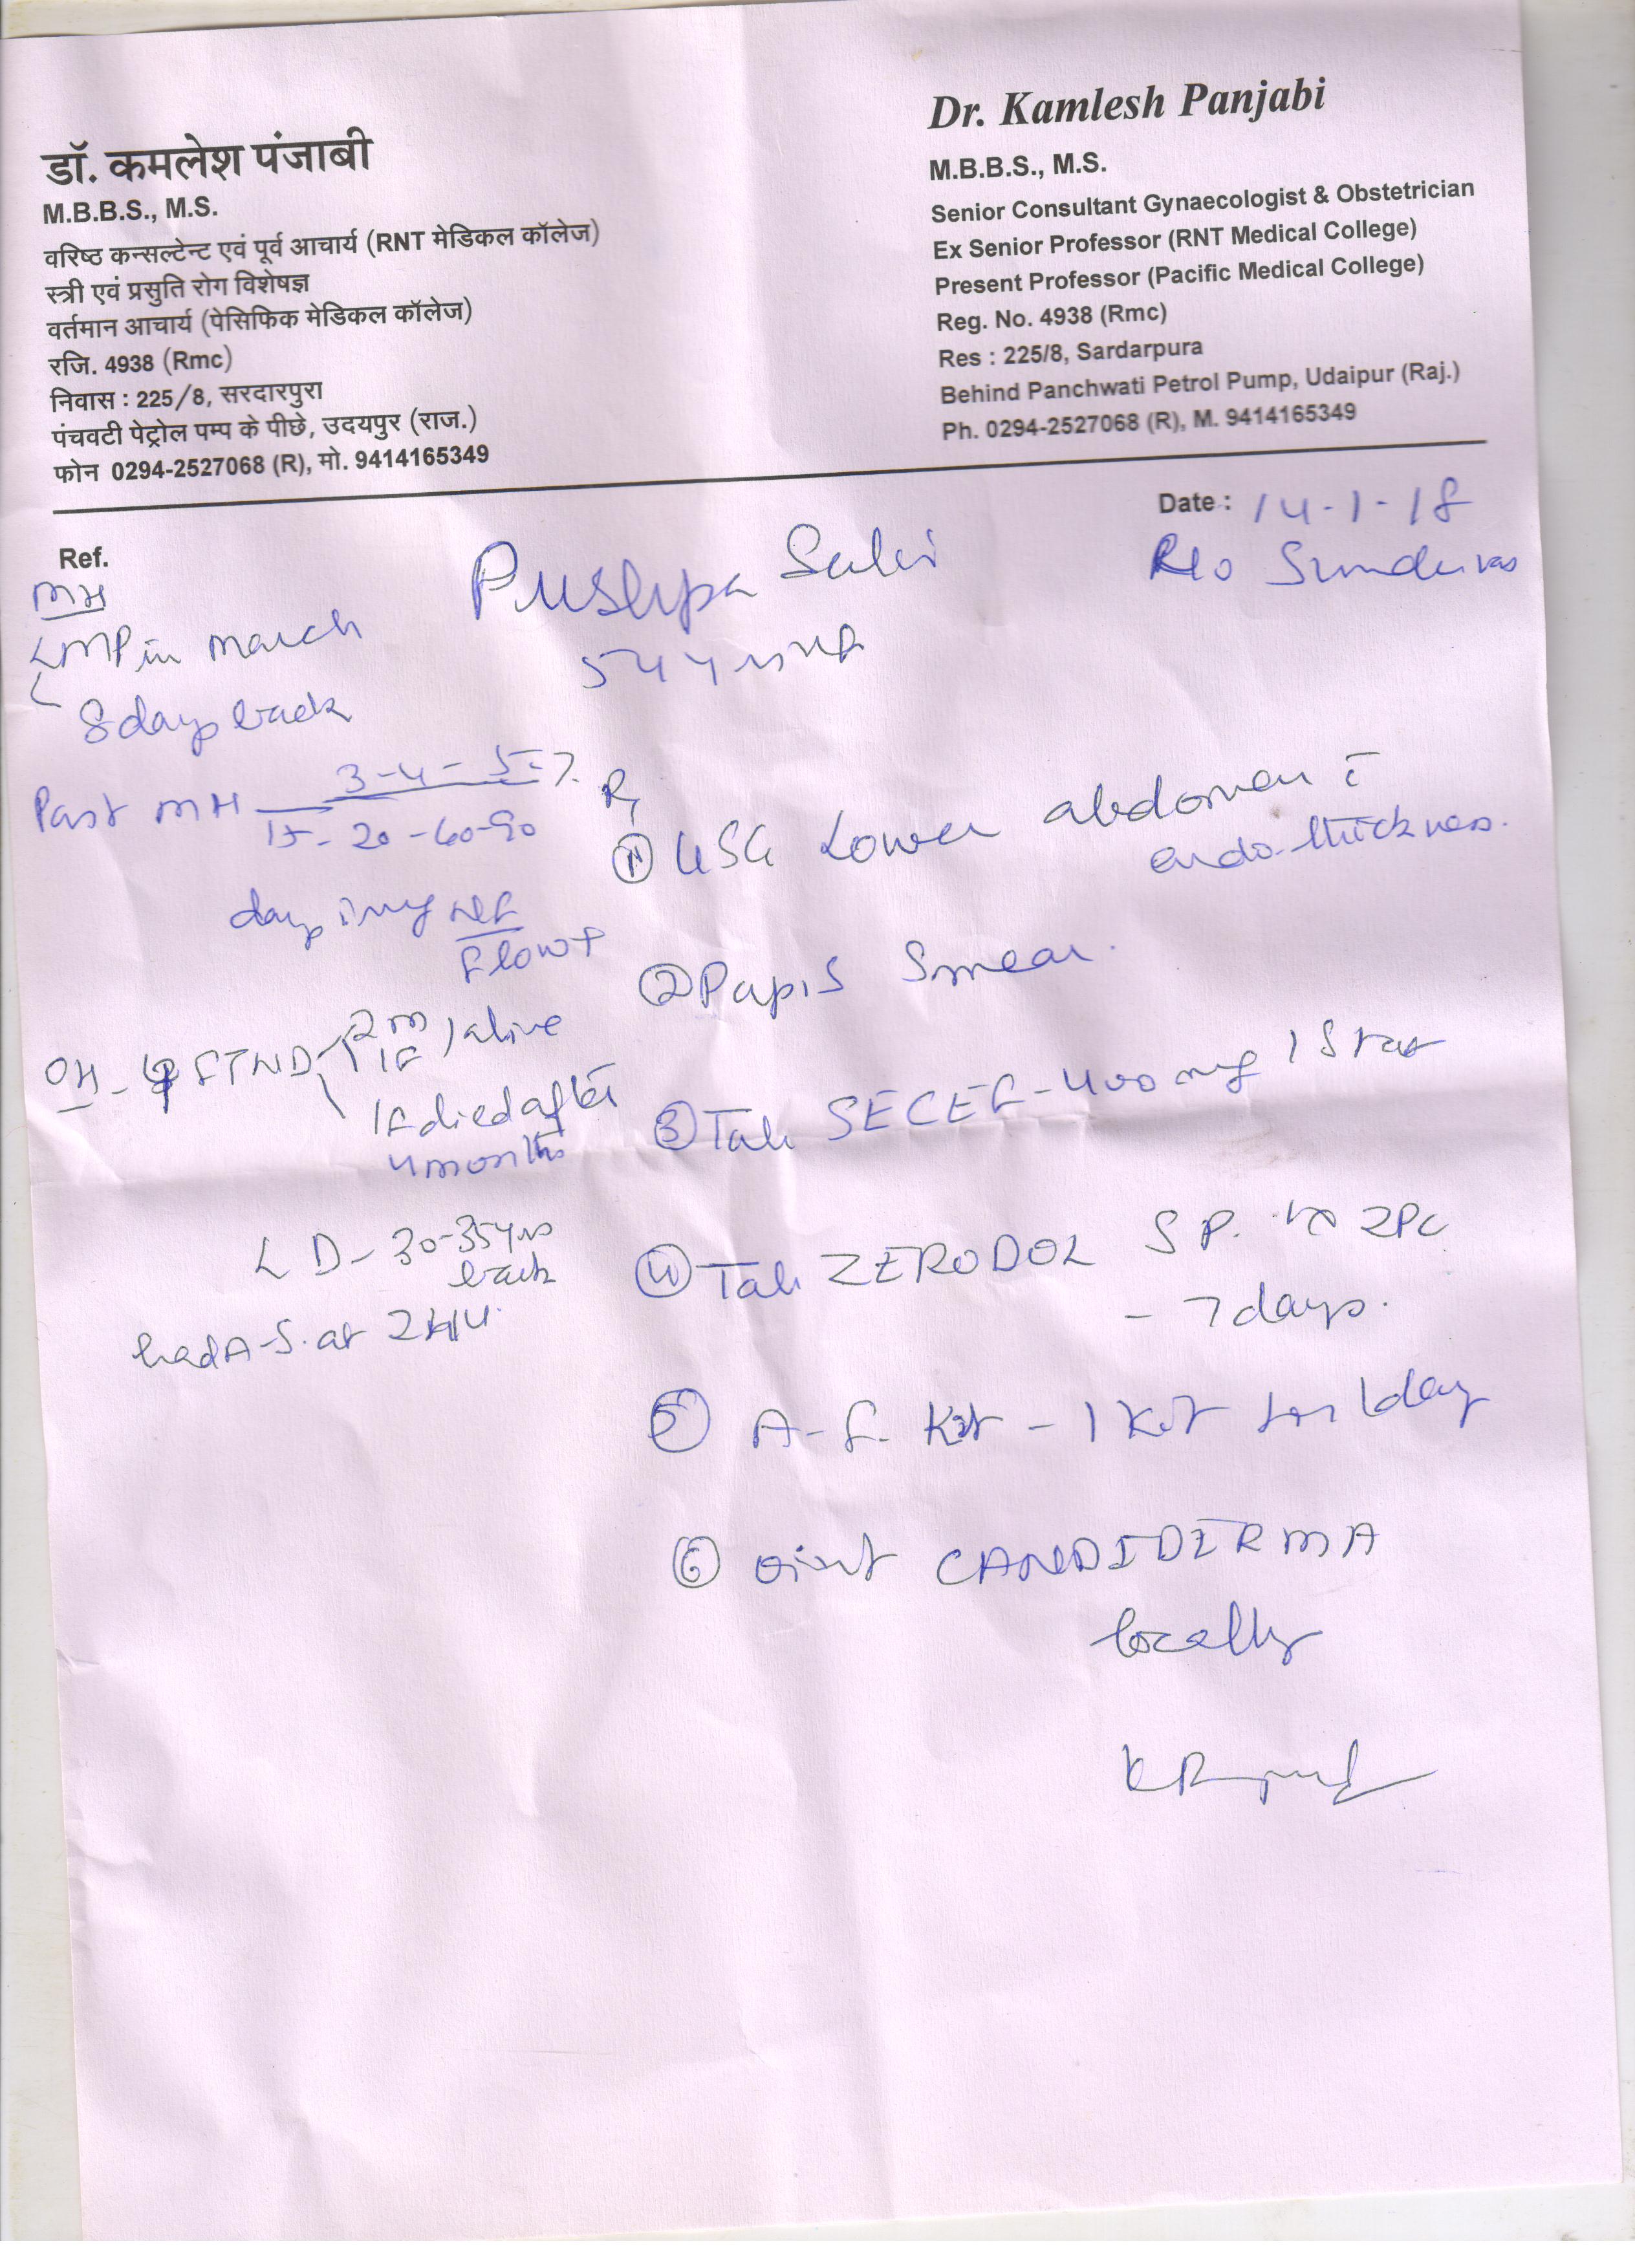 डॉ. कमलेश पंजाबी
M.B.B.S., M.S.
वरिष्ठ कन्सल्टेन्ट एवं पूर्व आचार्य (RNT मेडिकल कॉलेज)
स्त्री एवं प्रसुति रोग विशेषज्ञ
वर्तमान आचार्य (पेसिफिक मेडिकल कॉलेज)
रजि. 4938 (Rmc)
निवास : 225/8, सरदारपुरा
पंचवटी पेट्रोल पम्प के पीछे, उदयपुर (राज.)
फोन 0294-2527068 (R), मो. 9414165349
Dr. Kamlesh Panjabi
M.B.B.S., M.S.
Senior Consultant Gynaecologist & Obstetrician
Ex Senior Professor (RNT Medical College)
Present Professor (Pacific Medical College)
Reg. No. 4938 (Rmc)
Res : 225/8, Sardarpura
Behind Panchwati Petrol Pump, Udaipur (Raj.)
Ph. 0294-2527068 (R), M. 9414165349
Date : 14-1-18
Ref.
Pushpa
R/o
MH
LMP in march
8 days back
Past MH 3-4-5-7
15-20-60-90
days
Flow+
OH - FTND 2m 1F alive
1F died after
4 months
L D - 30-35 yrs
back
had A-S. at
Rx
① USG Lower abdomen c̄
endo. thickness.
② Pap's Smear.
③ Tab SECEF - 400 mg 1 Stat
④ Tab ZERODOL SP.
- 7 days.
⑤ A-F. Kit - 1 Kit for 1 day
⑥ Oint CANDIDERMA
locally